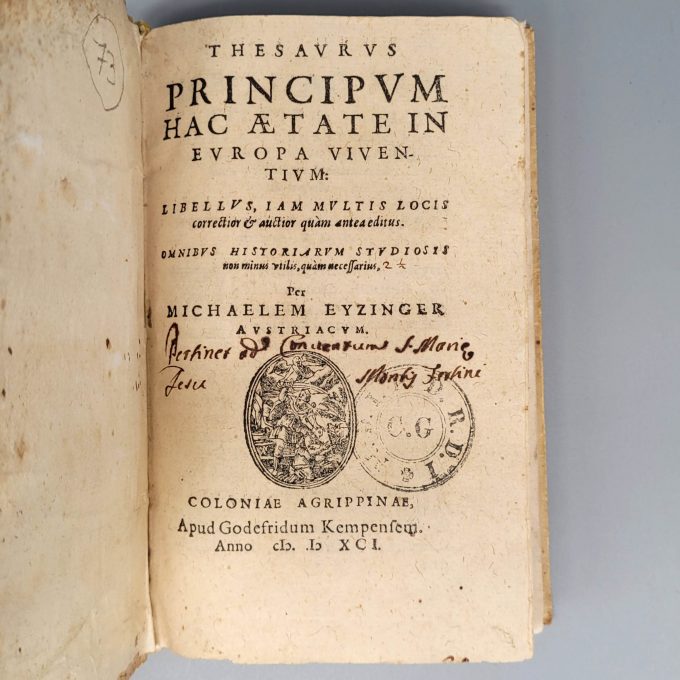 THESAVRVS
PRINCIPVM
HAC ÆTATE IN
EVROPA VIVEN-
TIVM:
LIBELLVS, IAM MVLTIS LOCIS
correctior & auctior quàm antea editus.
OMNIBVS HISTORIARVM STVDIOSIS
non minus vtilis, quàm necessarius,
Per
MICHAELEM EYZINGER
AVSTRIACVM.
Pertinet ad Conuentum S. Marie
Jesu
COLONIAE AGRIPPINAE,
Apud Godefridum Kempensem.
Anno cIↄ. Iↄ XCI.
C.G